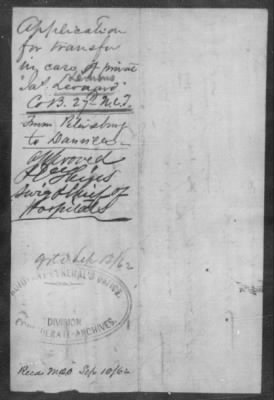 Application
for transfer
in case of private
Jas. Leonard
Co B. 27th N.C.T.
From Petersburg
to Danville
approved
Surg & Chief of
Hospitals
Sep 13/62
ADJUTANT GENERAL'S OFFICE.
DIVISION
CONFEDERATE-ARCHIVES.
Recd MDO Sep 10/62